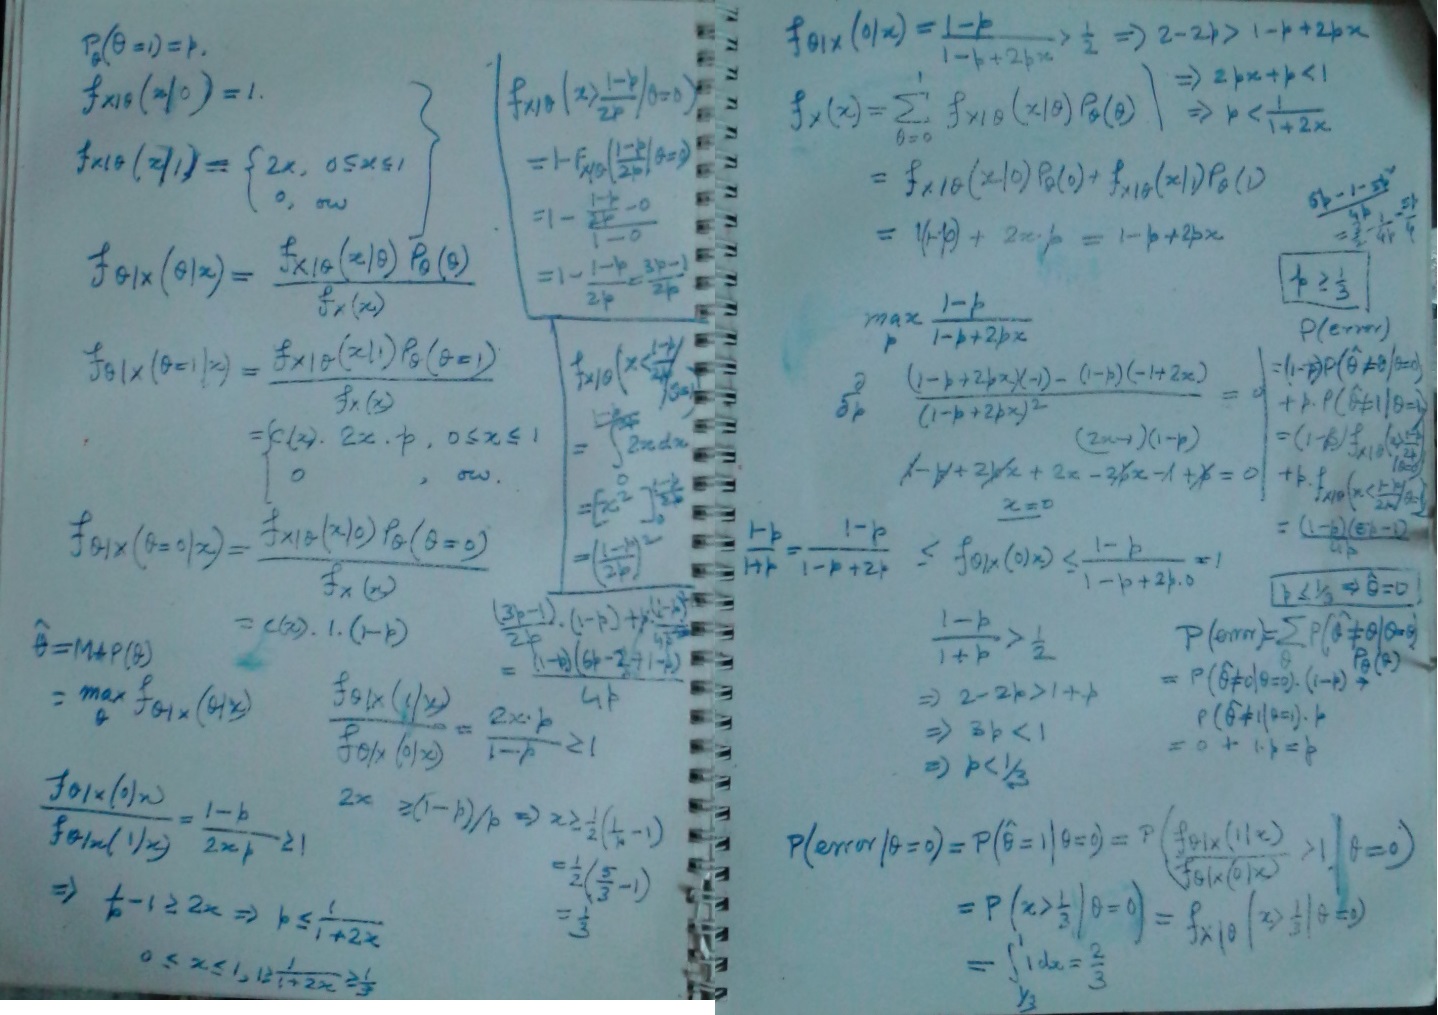 P_θ(θ=1) = p.
f_{X|θ}(x|0) = 1.
f_{X|θ}(x|1) = { 2x, 0≤x≤1
0, ow
f_{θ|X}(θ|x) = f_{X|θ}(x|θ) P_θ(θ) / f_X(x)
f_{θ|X}(θ=1|x) = f_{X|θ}(x|1) P_θ(θ=1) / f_X(x)
= { c(x). 2x. p, 0≤x≤1
0, ow.
f_{θ|X}(θ=0|x) = f_{X|θ}(x|0) P_θ(θ=0) / f_X(x)
= c(x). 1. (1-p)
θ̂ = MAP(θ)
= max_θ f_{θ|X}(θ|x)
f_{θ|X}(0|x) / f_{θ|X}(1|x) = (1-p) / 2xp ≥ 1
⇒ 1/p - 1 ≥ 2x ⇒ p ≤ 1/(1+2x)
0 ≤ x ≤ 1, 1 ≥ 1/(1+2x) ≥ 1/3
f_{θ|X}(1|x) / f_{θ|X}(0|x) = 2x.p / (1-p) ≥ 1
2x ≥ (1-p)/p ⇒ x ≥ 1/2 (1/p - 1)
= 1/2 (5/3 - 1)
= 1/3
f_{X|θ}(x > (1-p)/2p | θ=0)
= 1 - F_{X|θ}((1-p)/2p | θ=0)
= 1 - ((1-p)/2p - 0) / (1-0)
= 1 - (1-p)/2p = (3p-1)/2p
f_{X|θ}(x < (1-p)/2p / θ=1)
= ∫_0 2x dx
= [x²]_0^{(1-p)/2p}
= ((1-p)/2p)²
(3p-1)/2p . (1-p) + p. (1-p)²/4p²
= (1-p)(6p-2+1-p) / 4p
f_{θ|X}(0|x) = (1-p)/(1-p+2px) > 1/2 ⇒ 2-2p > 1-p+2px
⇒ 2px + p < 1
⇒ p < 1/(1+2x)
f_X(x) = Σ_{θ=0}^{1} f_{X|θ}(x|θ) P_θ(θ)
= f_{X|θ}(x|0) P_θ(0) + f_{X|θ}(x|1) P_θ(1)
= 1(1-p) + 2x.p = 1-p+2px
max_p (1-p)/(1-p+2px)
∂/∂p ((1-p+2px)(-1) - (1-p)(-1+2x)) / (1-p+2px)² = 0
(2x-1)(1-p)
1-p+2px + 2x-2px-1+p = 0
x=0
(1-p)/(1+p) = (1-p)/(1-p+2p) ≤ f_{θ|X}(0|x) ≤ (1-p)/(1-p+2p.0) = 1
(1-p)/(1+p) > 1/2
⇒ 2-2p > 1+p
⇒ 3p < 1
⇒ p < 1/3
p ≥ 1/3
P(error)
= (1-p)P(θ̂≠0|θ=0)
+ p.P(θ̂≠1|θ=1)
= (1-p) f_{X|θ}
+ p. f_{X|θ}(x < (1-p)/2p |θ=1)
= (1-p)(5p-1)/4p
p ≤ 1/3 ⇒ θ̂=0
P(error) = Σ_θ P(θ̂≠θ|θ=θ) P_θ(θ)
= P(θ̂≠0|θ=0).(1-p) +
P(θ̂≠1|θ=1).p
= 0 + 1.p = p
P(error|θ=0) = P(θ̂=1|θ=0) = P(f_{θ|X}(1|x) / f_{θ|X}(0|x) > 1 | θ=0)
= P(x > 1/3 | θ=0) = f_{X|θ}(x > 1/3 | θ=0)
= ∫_{1/3}^{1} 1 dx = 2/3